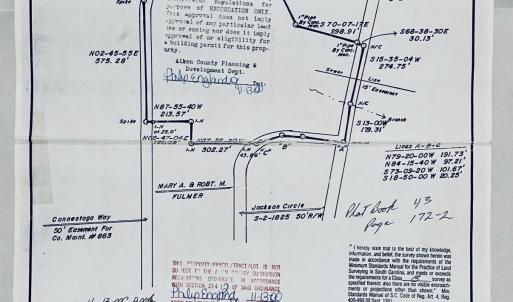 purpose of RECORDATION ONLY.
This approval does not imply
approval of any particular land
use or zoning nor does it imply
approval of or eligibility for
a building permit for this prop-
erty.
Aiken County Planning &
Development Dept.
Spike
N02-45-55E
575.28'
1"Pipe
S70-07-17E
298.91'
S68-38-30E
30.13'
N/C
1"Pipe
By Conc.
Mon.
S15-35-04W
274.75'
Sewer Line
15' Easement
N/C
Branch
S13-00W
179.31'
N87-55-40W
213.57'
Spike
I-N
302.27'
43.86'
"C"
"B"
"A"
Lines A-B-C
N79-20-00W 191.73'
N84-15-40W 97.21'
S73-09-20W 101.67'
S18-50-00W 20.25'
MARY A. & ROBT. M.
FULMER
Jackson Circle
3-2-1825 50'R/W
Connestoga Way
50' Easement For
Co. Maint. #863
Plat Book 43
Page 172-2
THIS PROPERTY/PARCEL/TRACT/LOT IS NOT
"I hereby state that to the best of my knowledge,
information, and belief, the survey shown herein was
made in accordance with the requirements of the
Minimum Standards Manual for the Practice of Land
Surveying in South Carolina, and meets or exceeds
the requirements for a Class B survey as
specified therein; also there are no visible encroach-
ments or projections other than shown." Min.
Standards Manual of S.C. Code of Reg. Art. 4, Reg.